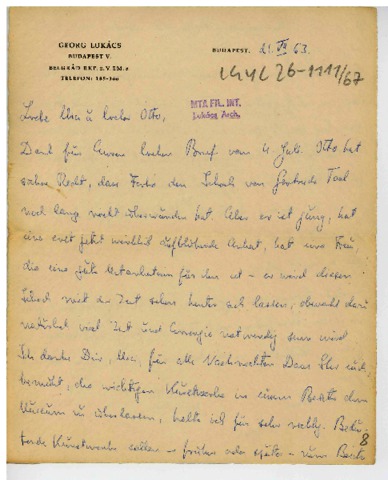 GEORG LUKÁCS
BUDAPEST V.
BELGRÁD RKP. 2. V. EM. 5
TELEFON: 185-366
BUDAPEST, 21. VII 63.
LGYL 26-1111/67
MTA FIL. INT.
Lukács Arch.
Liebe Usa u lieber Otto,
Dank für Euren lieben Brief vom 4 Juli. Otto hat
sicher Recht, dass den Schock von Gertruds Tod
noch lang nicht überwunden hat. Aber er ist jung, hat
eine erst jetzt wirklich aufblühende hat eine Frau,
die eine gute für ihn ist – er wird diesen
mit der Zeit sicher hinter sich lassen, obwohl dazu
natürlich viel Zeit und Energie notwendig sein wird
Ich danke Dir, Usa, für alle Nachrichten Dass Ihr Euch
bemüht, die wichtigen Kunstwerke in einem
Museum zu überlassen, halte ich für sehr richtig. Bedeu-
tende Kunstwerke sollen – früher oder später – zum
8